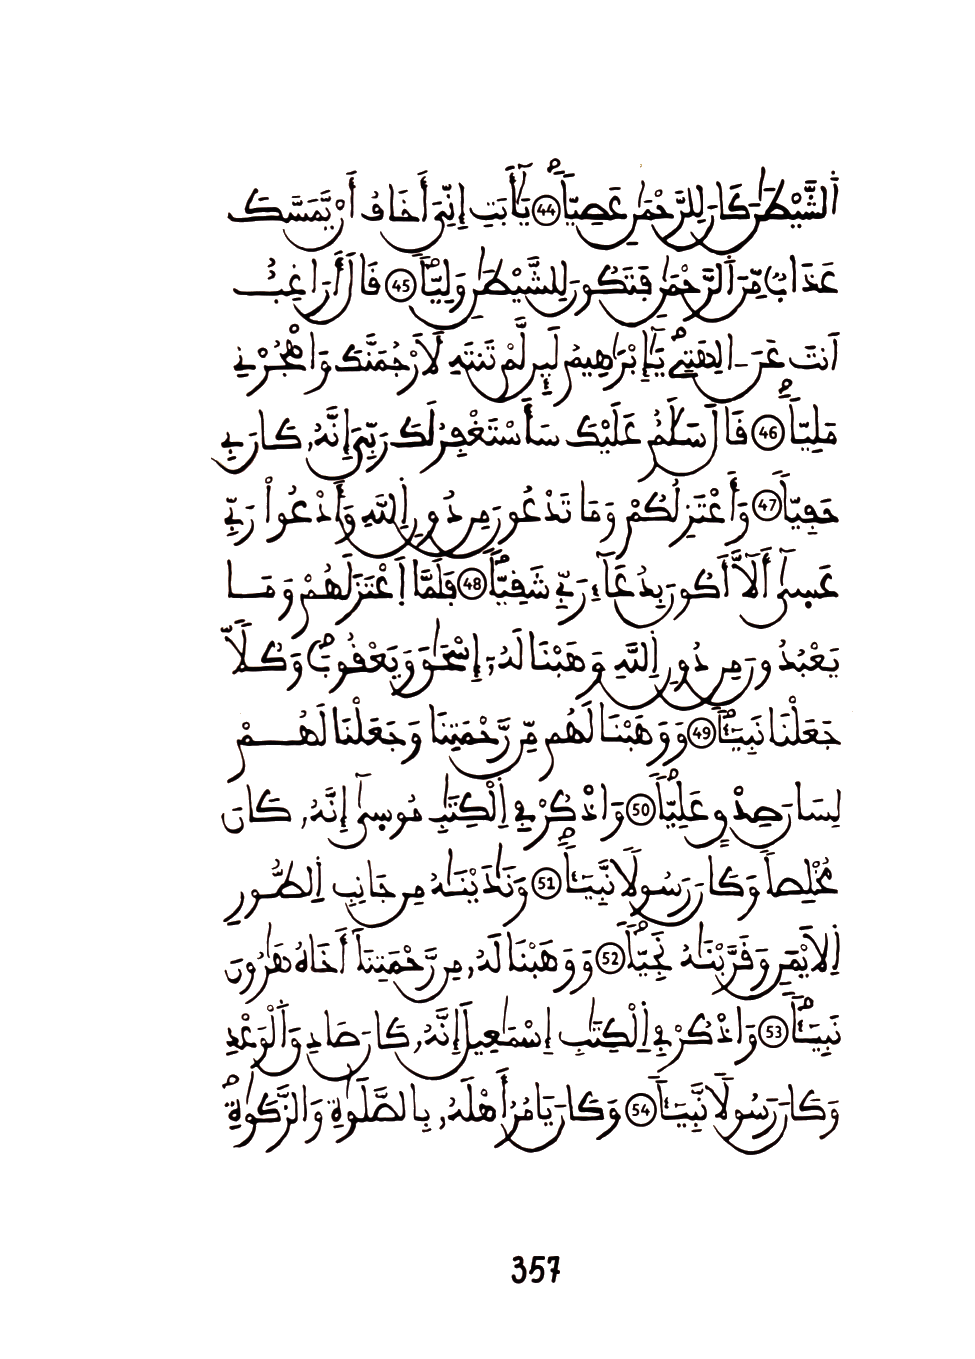 اَ۬لشَّيْطَٰنَ كَانَ لِلرَّحْمَٰنِ عَصِيّاٗۖ 44 يَٰٓأَبَتِ إِنِّيَ أَخَافُ أَنْ يَّمَسَّكَ
عَذَابٞ مِّنَ اَ۬لرَّحْمَٰنِ فَتَكُونَ لِلشَّيْطَٰنِ وَلِيّاٗۖ 45 قَالَ أَرَاغِبٌ
اَنتَ عَنَ ـالِهَتِےۖ يَٰٓإِبْرَٰهِيمُ لَئِن لَّمْ تَنتَهِ لَأَرْجُمَنَّكَ وَاهْجُرْنِے
مَلِيّاٗۖ 46 قَالَ سَلَٰمٌ عَلَيْكَ سَأَسْتَغْفِرُ لَكَ رَبِّيَ إِنَّهُۥ كَانَ بِے
حَفِيّاٗ 47 وَأَعْتَزِلُكُمْ وَمَا تَدْعُونَ مِن دُونِ اِ۬للَّهِ وَأَدْعُواْ رَبِّے
عَس۪يٰٓ أَلَّآ أَكُونَ بِدُعَآءِ رَبِّے شَقِيّاٗۖ 48 فَلَمَّا اَ۪عْتَزَلَهُمْ وَمَا
يَعْبُدُونَ مِن دُونِ اِ۬للَّهِ وَهَبْنَا لَهُۥٓ إِسْحَٰقَ وَيَعْقُوبَۖ وَكُلّاٗ
جَعَلْنَا نَبِيٓـٔاٗۖ 49 وَوَهَبْنَا لَهُم مِّن رَّحْمَتِنَا وَجَعَلْنَا لَهُمْ
لِسَانَ صِدْقٍ عَلِيّاٗۖ 50 وَاذْكُرْ فِے اِ۬لْكِتَٰبِ مُوس۪يٰٓ إِنَّهُۥ كَانَ
مُخْلِصاٗ وَكَانَ رَسُولاٗ نَّبِيٓـٔاٗۖ 51 وَنَٰدَيْنَٰهُ مِن جَانِبِ اِ۬لطُّورِ
اِ۬لَايْمَنِ وَقَرَّبْنَٰهُ نَجِيّاٗۖ 52 وَوَهَبْنَا لَهُۥ مِن رَّحْمَتِنَآ أَخَاهُ هَٰرُونَ
نَبِيٓـٔاٗۖ 53 وَاذْكُرْ فِے اِ۬لْكِتَٰبِ إِسْمَٰعِيلَ إِنَّهُۥ كَانَ صَادِقَ اَ۬لْوَعْدِ
وَكَانَ رَسُولاٗ نَّبِيٓـٔاٗ 54 وَكَانَ يَامُرُ أَهْلَهُۥ بِالصَّلَوٰةِ وَالزَّكَوٰةِۖ
357